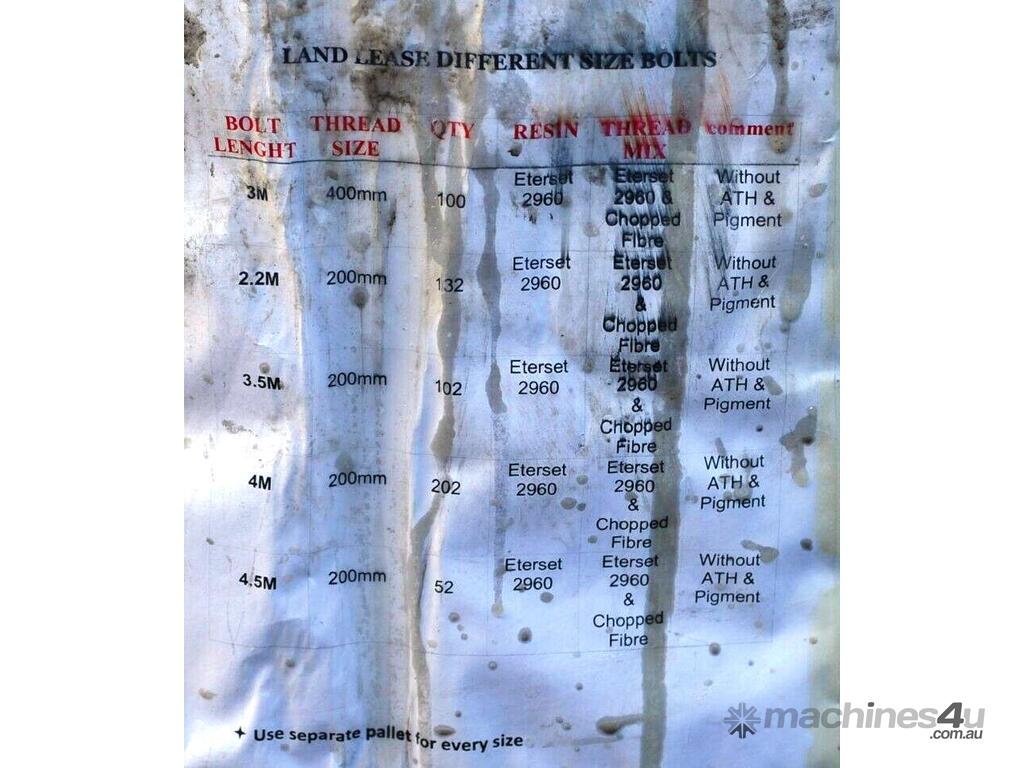 LAND LEASE DIFFERENT SIZE BOLTS
BOLT LENGHT THREAD SIZE QTY RESIN THREAD MIX comment
3M 400mm 100 Eterset 2960 Eterset 2960 & Chopped Fibre Without ATH & Pigment
2.2M 200mm 132 Eterset 2960 Eterset 2960 & Chopped Fibre Without ATH & Pigment
3.5M 200mm 102 Eterset 2960 Eterset 2960 & Chopped Fibre Without ATH & Pigment
4M 200mm 202 Eterset 2960 Eterset 2960 & Chopped Fibre Without ATH & Pigment
4.5M 200mm 52 Eterset 2960 Eterset 2960 & Chopped Fibre Without ATH & Pigment
Use separate pallet for every size
machines4u
.com.au